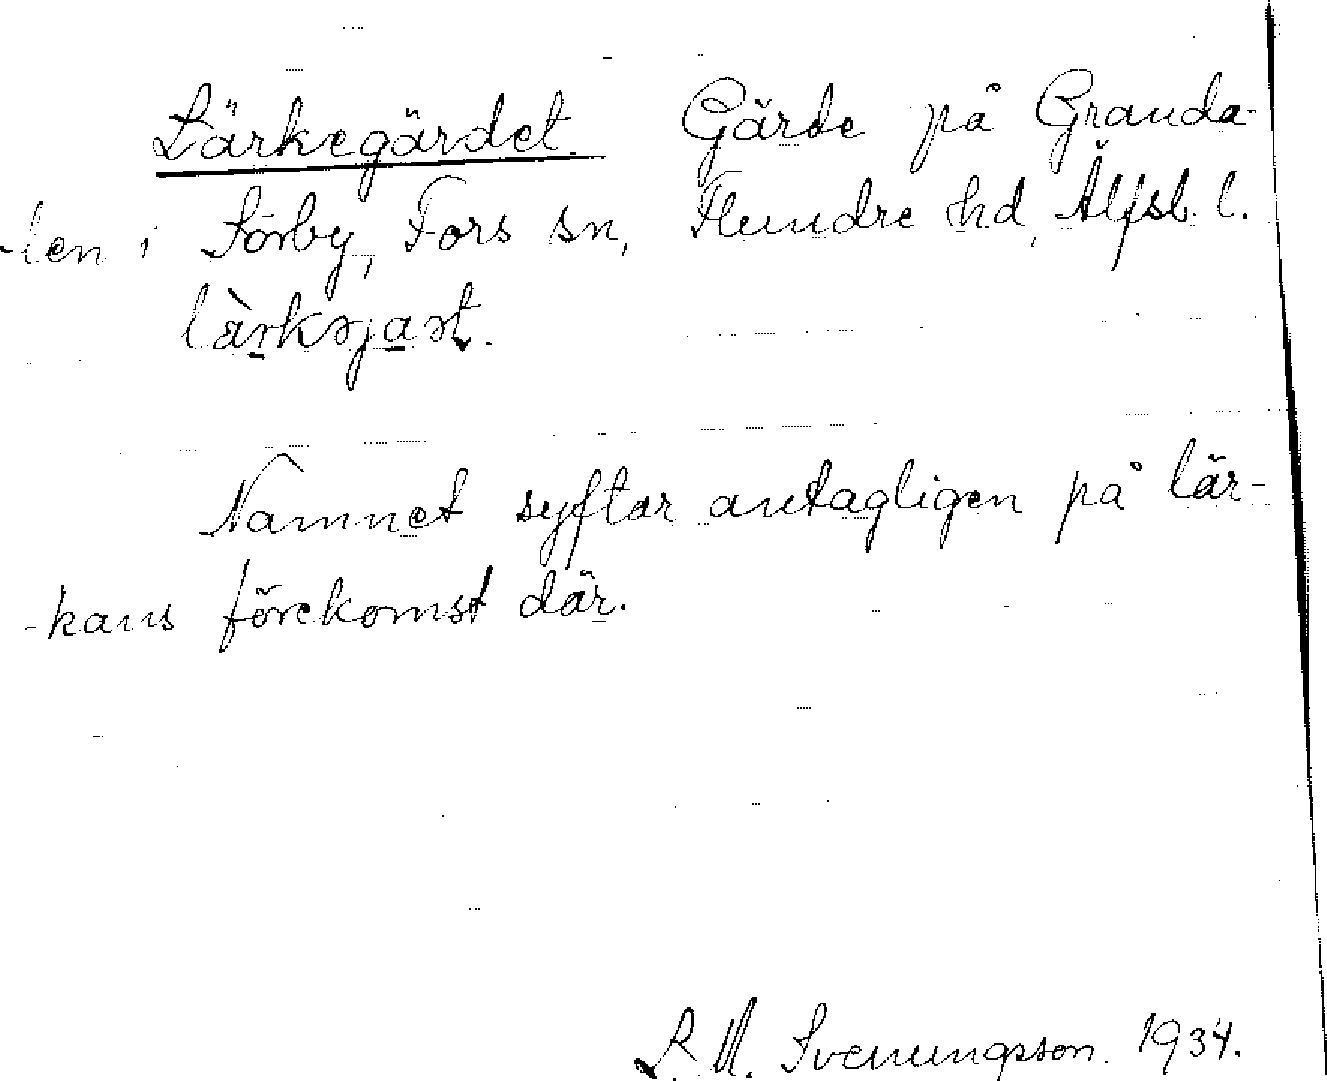 Lärkegärdet. Gärde på Granda-
-len i Sörby, Fors sn, Flundre hd, Älfsb. l.
Namnet syftar antagligen på lär-
-kans förekomst där.
L. M. Svenungsson. 1934.